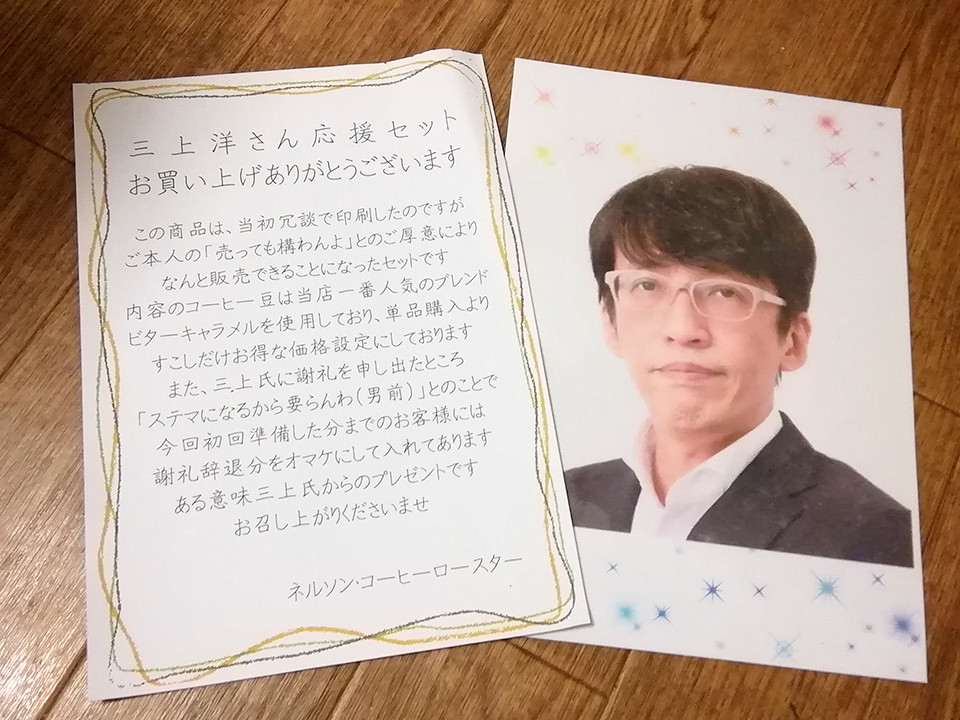 三上洋さん応援セット
お買い上げありがとうございます
この商品は、当初冗談で印刷したのですが
ご本人の「売っても構わんよ」とのご厚意により
なんと販売できることになったセットです
内容のコーヒー豆は当店一番人気のブレンド
ビターキャラメルを使用しており、単品購入より
すこしだけお得な価格設定にしております
また、三上氏に謝礼を申し出たところ
「ステマになるから要らんわ(男前)」とのことで
今回初回準備した分までのお客様には
謝礼辞退分をオマケにして入れてあります
ある意味三上氏からのプレゼントです
お召し上がりくださいませ
ネルソン・コーヒーロースター